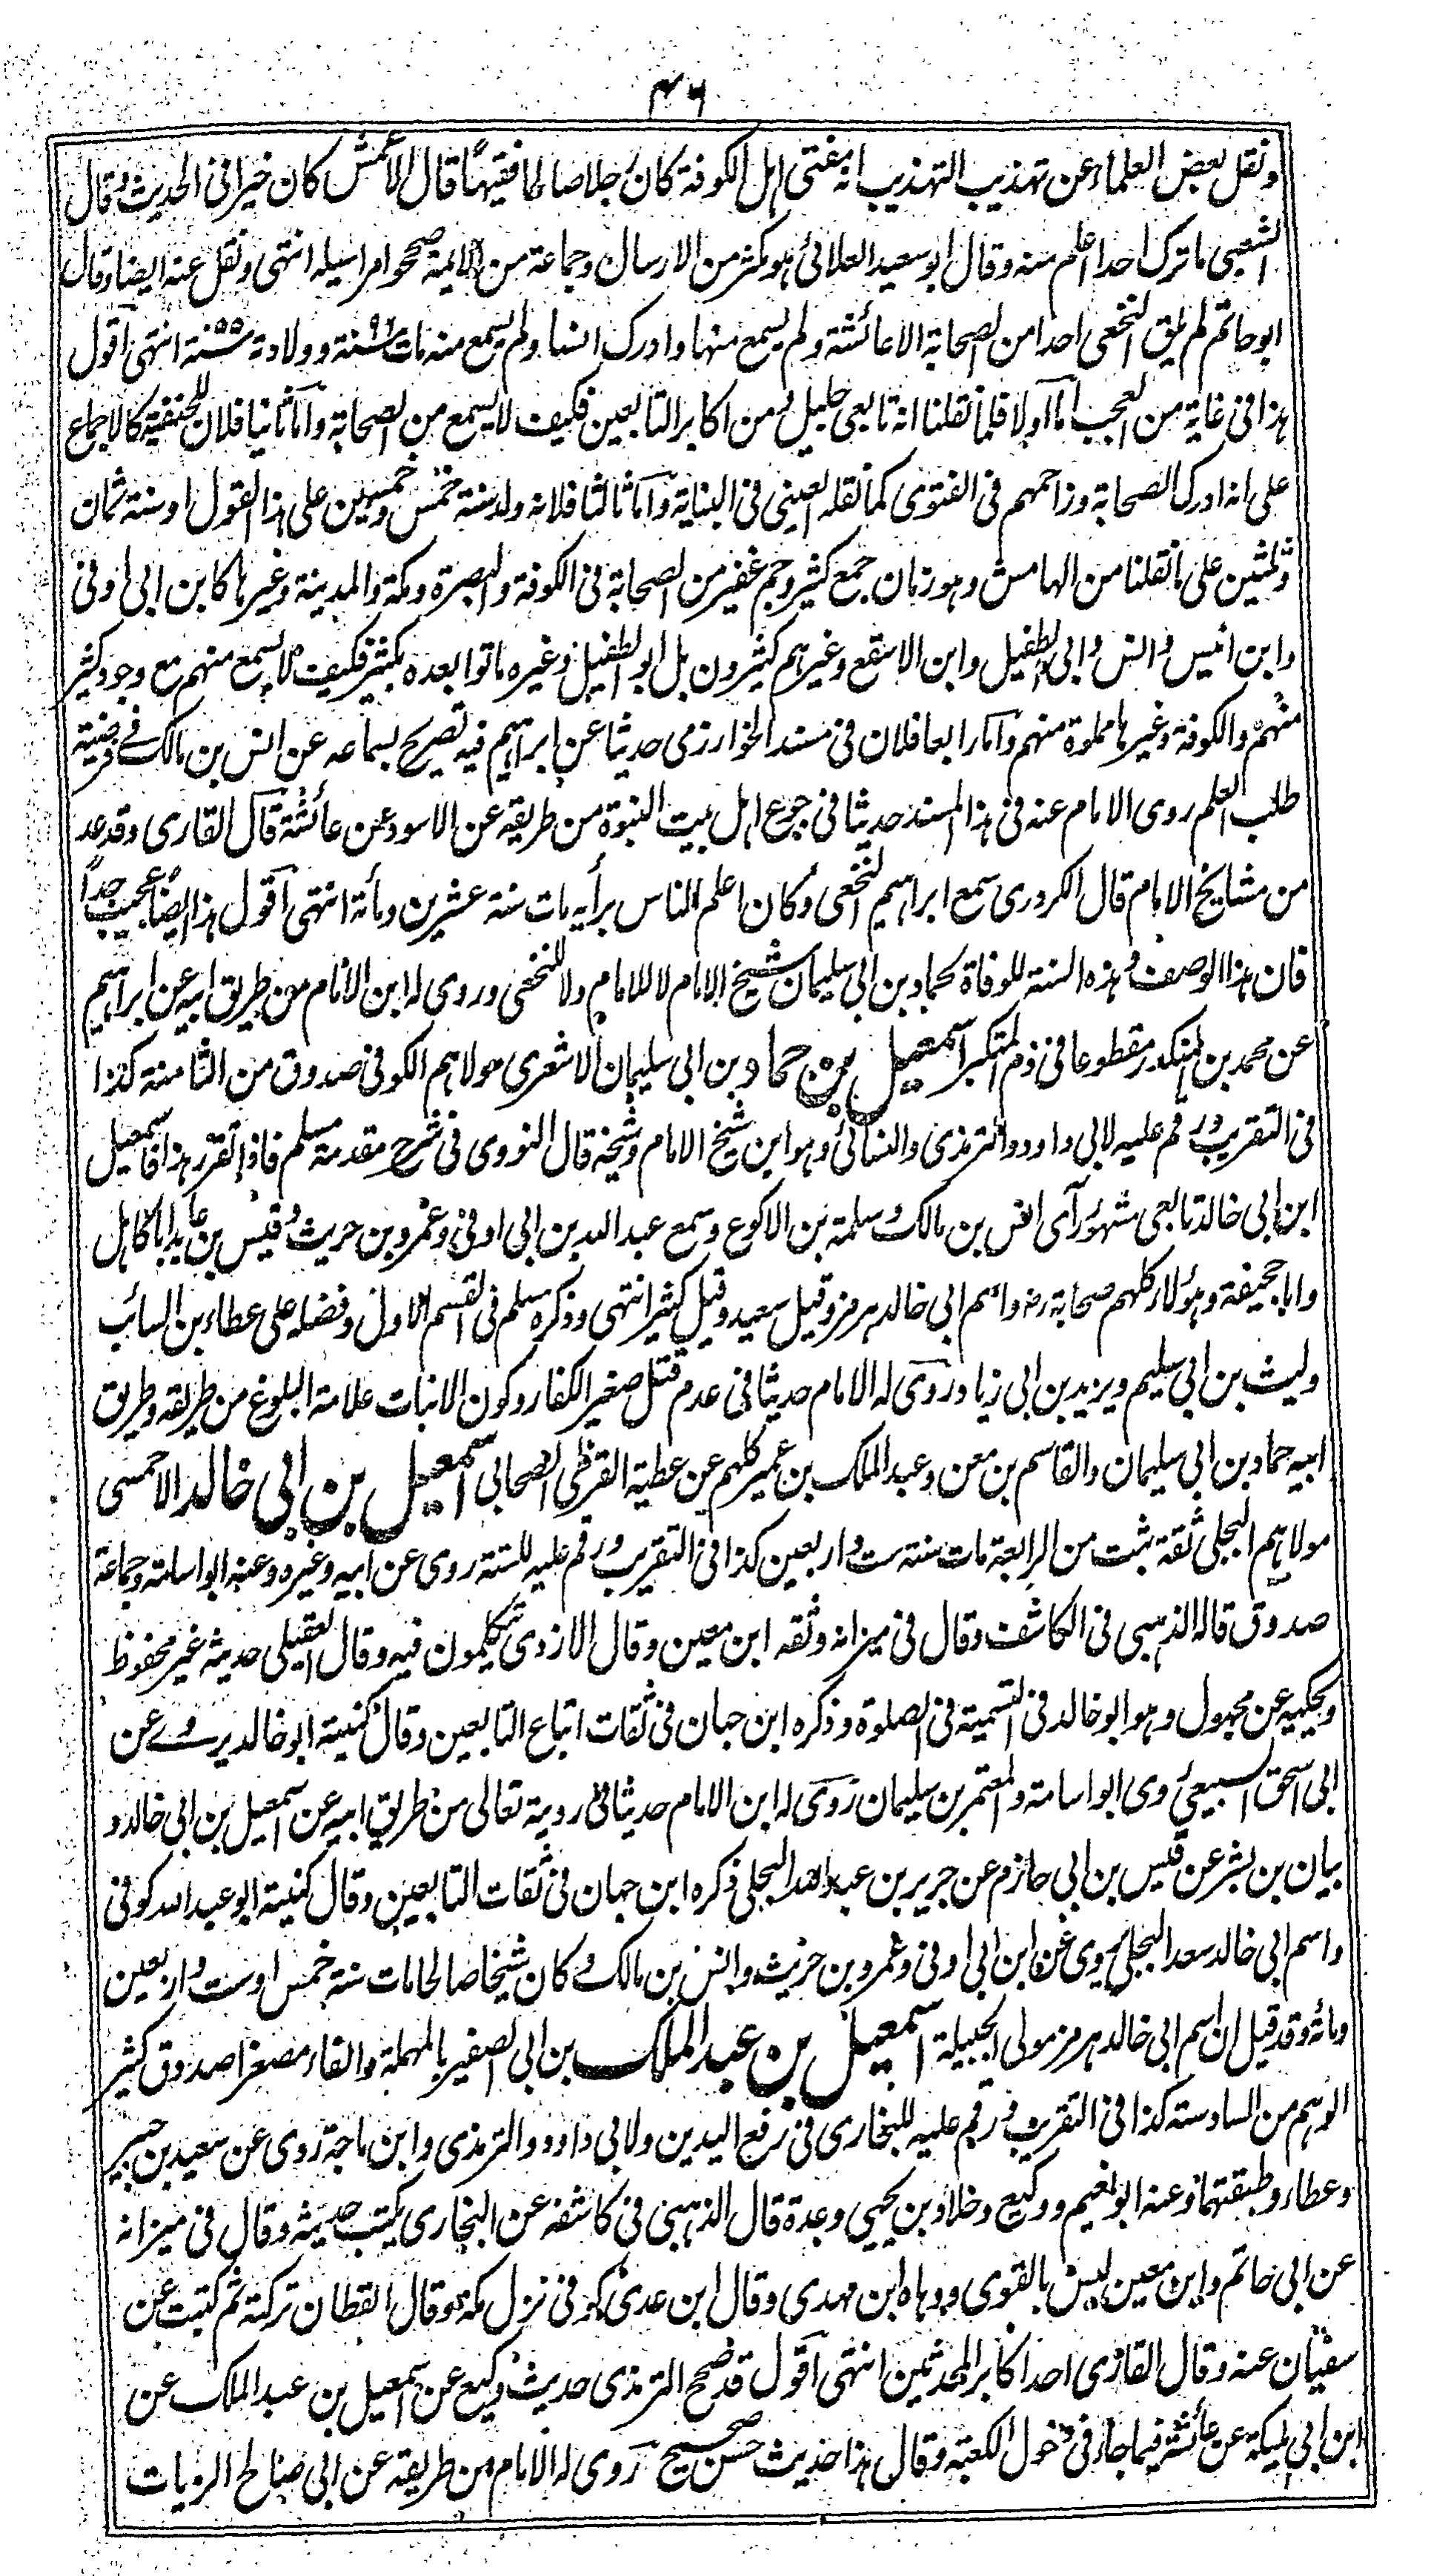 ٤٦
ونقل بعض العلماء عن تهذيب التهذيب انه مفتى اهل الكوفة كان رجلا صالحا فقيها قال الاعمش كان خيرا فى الحديث وقال
الشعبى ما ترك احدا اعلم منه وقال ابو سعيد العلائى هو مكثر من الارسال وجماعة من الائمة صححوا مراسيله انتهى ونقل عنه ايضا وقال
ابو حاتم لم يلق النخعى احدا من الصحابة الا عائشة ولم يسمع منها وادرك انسا ولم يسمع منه مات سنة ٩٦ وولادة سنة ٥٥ انتهى اقول
هذا فى غاية من العجب اما اولا فلما نقلنا انه تابعى جليل من اكابر التابعين فكيف لا يسمع من الصحابة واما ثانيا فلان للحنفية كالاجماع
على انه ادرك الصحابة وزاحمهم فى الفتوى كما نقله العينى فى البناية واما ثالثا فلانه ولد سنة خمس وخمسين على هذا القول او سنة ثمان
وثلثين على ما نقلنا من الهامش وهو زمان جمع كثير وجم غفير من الصحابة فى الكوفة والبصرة ومكة والمدينة وغيرها كابن ابى اوفى
وابن انيس وانس وابى الطفيل وابن الاسقع وغيرهم كثيرون بل ابو الطفيل وغيره ماتوا بعده بكثير فكيف لا يسمع منهم مع وجود كثير
منهم والكوفة وغيرها مملوة منهم واما رابعا فلان فى مسند الخوارزمى حديثا عن ابراهيم فيه تصريح بسماعه عن انس بن مالك فے فرضية
طلب العلم روى الامام عنه فى هذا المسند حديثا فى جوع اهل بيت النبوة من طريقه عن الاسود عن عائشة قال القارى وقد عد
من مشايخ الامام قال الكردرى سمع ابراهيم النخعى وكان اعلم الناس برأيه مات سنة عشرين ومأة انتهى اقول هذا ايضا عجيب جدا
فان هذا الوصف وهذه السنة للوفاة لحماد بن ابى سليمان شيخ الامام لا للامام ولا للنخعى وروى له ابن الامام من طريق ابيه عن ابراهيم
عن محمد بن المنكدر مقطوعا فى ذم المتكبر اسمعيل بن حماد بن ابى سليمان الاشعرى مولاهم الكوفى صدوق من الثامنة كذا
فى التقريب ورقم عليه لابى داود والترمذى والنسائى وهو ابن شيخ الامام وشيخه قال النووى فى شرح مقدمة مسلم فاذا تقرر هذا فاسمعيل
ابن ابى خالد تابعى مشهور رآى انس بن مالك وسلمة بن الاكوع وسمع عبد الله بن ابى اوفى وعمرو بن حريث وقيس بن عائذ ابا كاهل
وابا جحيفة وهؤلاء كلهم صحابة رض واسم ابى خالد هرمز وقيل سعيد وقيل كثير انتهى وذكره مسلم فى القسم الاول وفضله على عطاء بن السائب
وليث بن ابى سليم ويزيد بن ابى زياد وروى له الامام حديثا فى عدم قتل صغير الكفار وكون الانبات علامة البلوغ من طريقه وطريق
ابيه حماد بن ابى سليمان والقاسم بن معن وعبد الملك بن عمير كلهم عن عطية القرظى الصحابى اسمعيل بن ابى خالد الاحمسى
مولاهم البجلى ثقة ثبت من الرابعة مات سنة ست واربعين كذا فى التقريب ورقم عليه للستة روى عن ابيه وغيره وعنه ابو اسامة وجماعة
صدوق قاله الذهبى فى الكاشف وقال فى ميزانه وثقه ابن معين وقال الازدى يتكلمون فيه وقال العقيلى حديثه غير محفوظ
ويحكيه عن مجهول وهو ابو خالد فى التسمية فى الصلوة وذكره ابن حبان فى ثقات اتباع التابعين وقال كنيته ابو خالد يروے عن
ابى اسحق السبيعى روى ابو اسامة والمعتمر بن سليمان روى له ابن الامام حديثا فى روية تعالى من طريق ابيه عن اسمعيل بن ابى خالد و
بيان بن بشر عن قيس بن ابى حازم عن جرير بن عبد الله البجلى ذكره ابن حبان فى ثقات التابعين وقال كنيته ابو عبد الله كوفى
واسم ابى خالد سعد البجلى يروى عن ابن ابى اوفى وعمرو بن حريث وانس بن مالك وكان شيخا صالحا مات سنة خمس او ست واربعين
ومائة وقد قيل ان اسم ابى خالد هرمز مولى الجبيلة اسمعيل بن عبد الملك بن ابى الصفير بالمهملة والفاء مصغرا صدوق كثير
الوهم من السادسة كذا فى التقريب ورقم عليه للبخارى فى رفع اليدين ولابى داود والترمذى وابن ماجة روى عن سعيد بن جبير
وعطاء وطبقتهما وعنه ابو نعيم ووكيع وخلاد بن يحيى وعدة قال الذهبى فى كاشفه عن البخارى يكتب حديثه وقال فى ميزانه
عن ابى حاتم وابن معين ليس بالقوى ووهاه ابن مهدى وقال ابن عدى كوفى نزل مكة وقال القطان تركته ثم كتبت عن
سفيان عنه وقال القارى احد اكابر المحدثين انتهى اقول قد صحح الترمذى حديث وكيع عن اسمعيل بن عبد الملك عن
ابن ابى مليكة عن عائشة فيما جاء فى دخول الكعبة وقال هذا حديث حسن صحيح روى له الامام من طريقه عن ابى صالح الزيات